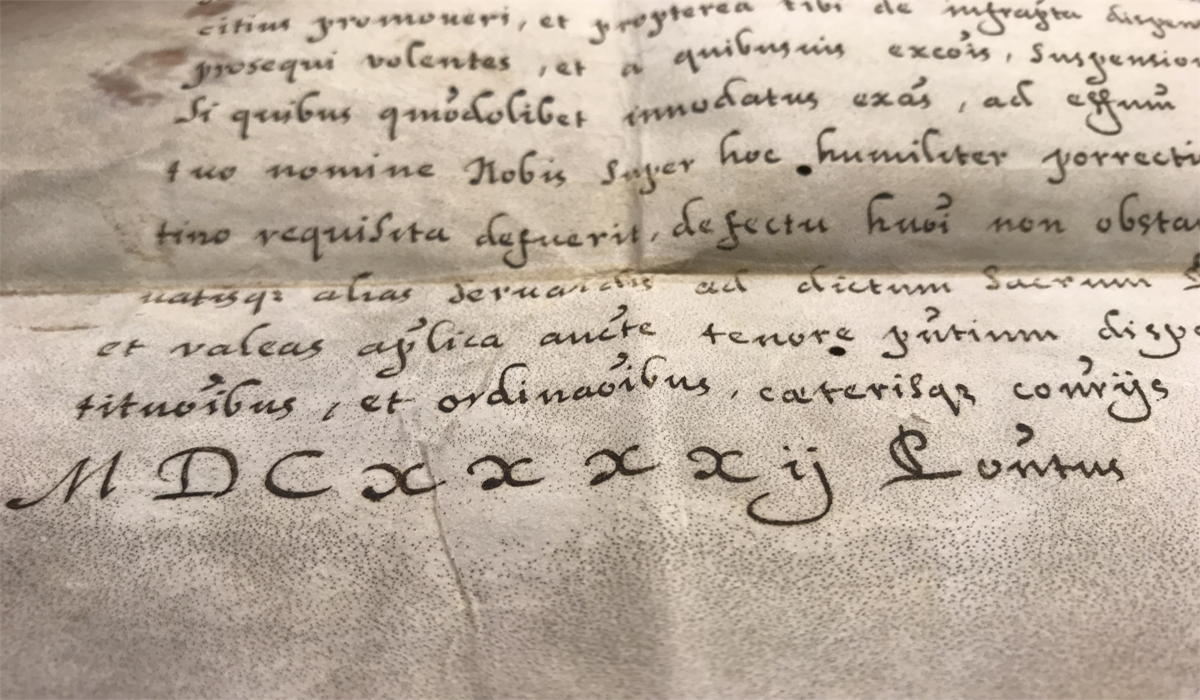 citius promoneri, et propterea tibi de infrapta dispen
prosequi volentes, et a quibusuis excōis, Suspension
Si quibus qmōdolibet innodatus exās, ad effum̄
tuo nomine Nobis Super hoc humiliter porrecti
tino requisita defuerit, defectu huōi non obsta
uatisqꝫ alias Seruandis ad dictum Sacrum
et valeas aplīca aucīte tenore pūtium dispe
tituōibus, et ordinaōibus, cæterisqꝫ conr̄ijs
MDCxxxxij Pontus